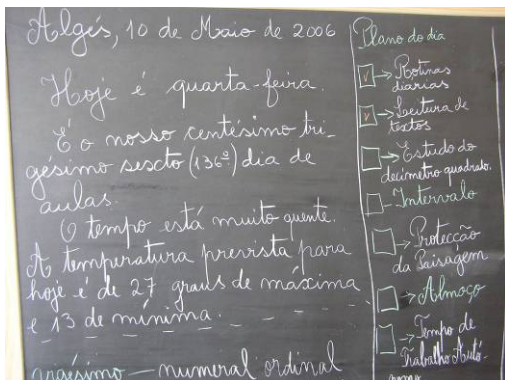 Algés, 10 de Maio de 2006
Hoje é quarta-feira.
É o nosso centésimo tri-
gésimo sexto (136º) dia de
aulas.
O tempo está muito quente.
A temperatura prevista para
hoje é de 27 graus de máxima
e 13 de mínima.
numeral ordinal
Plano do dia
v → Rotinas
diárias
v → Leitura de
textos
→ Estudo do
decímetro quadrado.
- Intervalo
→ Protecção
da Paisagem
→ Almoço
→ Tempo de
Trabalho Autó-
nomo